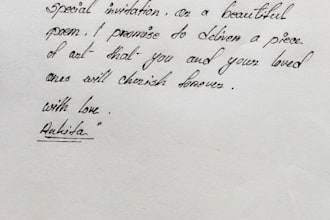 special invitation, or a beautiful
poem, I promise to deliver a piece
of art that you and your loved
ones will cherish forever.
with love,
Ankita"